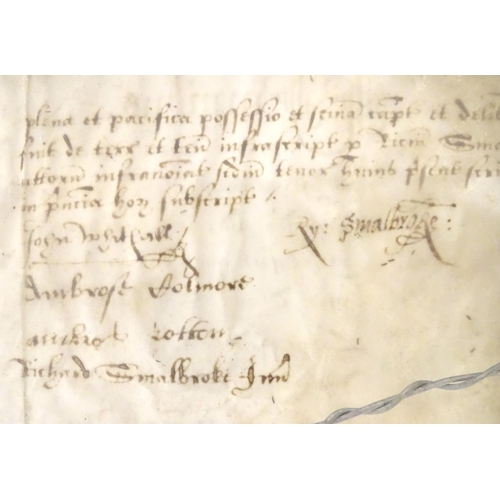 plena et pacifica possessio et seina capt et delib
fuit de terr et ten infrascript p Ricm Smal
attorn infranoiat sedm tenor huius psent scri
in pncia hoz subscript
John Whithall Ry: Smalbroke:
Ambrose Colmore
Ambros Cotton
Richard Smalbroke Jun